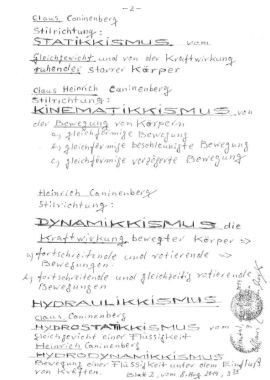 - 2 -
Claus Caninenberg
Stilrichtung:
STATIKKISMUS vom
Gleichgewicht und von der Kraftwirkung
ruhender starrer Körper
Claus Heinrich Caninenberg
Stilrichtung:
KINEMATIKKISMUS von
der Bewegung von Körpern
a, gleichförmige Bewegung
b, gleichförmige beschleunigte Bewegung
c, gleichförmig verzögerte Bewegung
Heinrich Caninenberg
Stilrichtung:
DYNAMIKKISMUS die
Kraftwirkung bewegter Körper =>
a, fortschreitende und rotierende =>
Bewegungen
b, fortschreitende und gleichzeitig rotierende
Bewegungen
HYDRAULIKKISMUS
Claus Caninenberg
HYDROSTATIKKISMUS vom
Gleichgewicht einer Flüssigkeit
Heinrich Caninenberg
HYDRODYNAMIKKISMUS
Bewegung einer Flüssigkeit unter dem Einfluß
von Kräften. Blatt 2, vom 8. Aug. 2014,